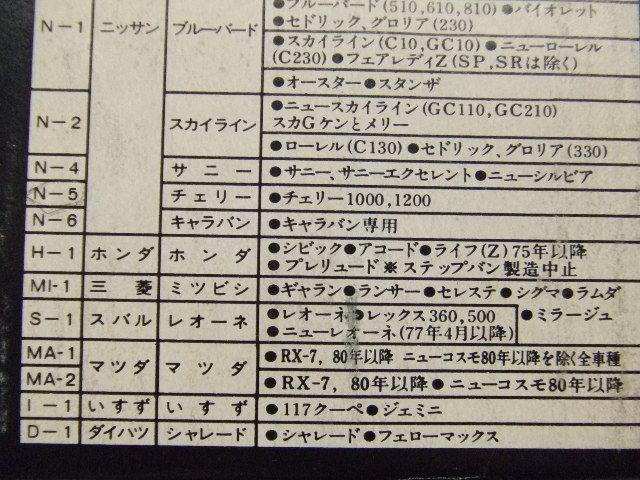 ●ブルーバード(510,610,810)●バイオレット
●セドリック、グロリア(230)
N−1 ニッサン ブルーバード
●スカイライン(C10,GC10)●ニューローレル
(C230)●フェアレディZ(SP,SRは除く)
●オースター●スタンザ
N−2 スカイライン
●ニュースカイライン(GC110,GC210)
スカGケンとメリー
●ローレル(C130)●セドリック、グロリア(330)
N−4 サニー ●サニー、サニーエクセレント●ニューシルビア
N−5 チェリー ●チェリー1000,1200
N−6 キャラバン ●キャラバン専用
H−1 ホンダ ホンダ ●シビック●アコード●ライフ(Z)75年以降
●プレリュード※ステップバン製造中止
MI-1 三菱 ミツビシ ●ギャラン●ランサー●セレステ●シグマ●ラムダ
S−1 スバル レオーネ ●レオーネ●レックス360,500 ●ミラージュ
●ニューレオーネ(77年4月以降)
MA-1 マツダ マツダ ●RX-7,80年以降 ニューコスモ80年以降を除く全車種
MA-2 ●RX-7,80年以降●ニューコスモ80年以降
I−1 いすず いすず ●117クーペ●ジェミニ
D−1 ダイハツ シャレード ●シャレード●フェローマックス